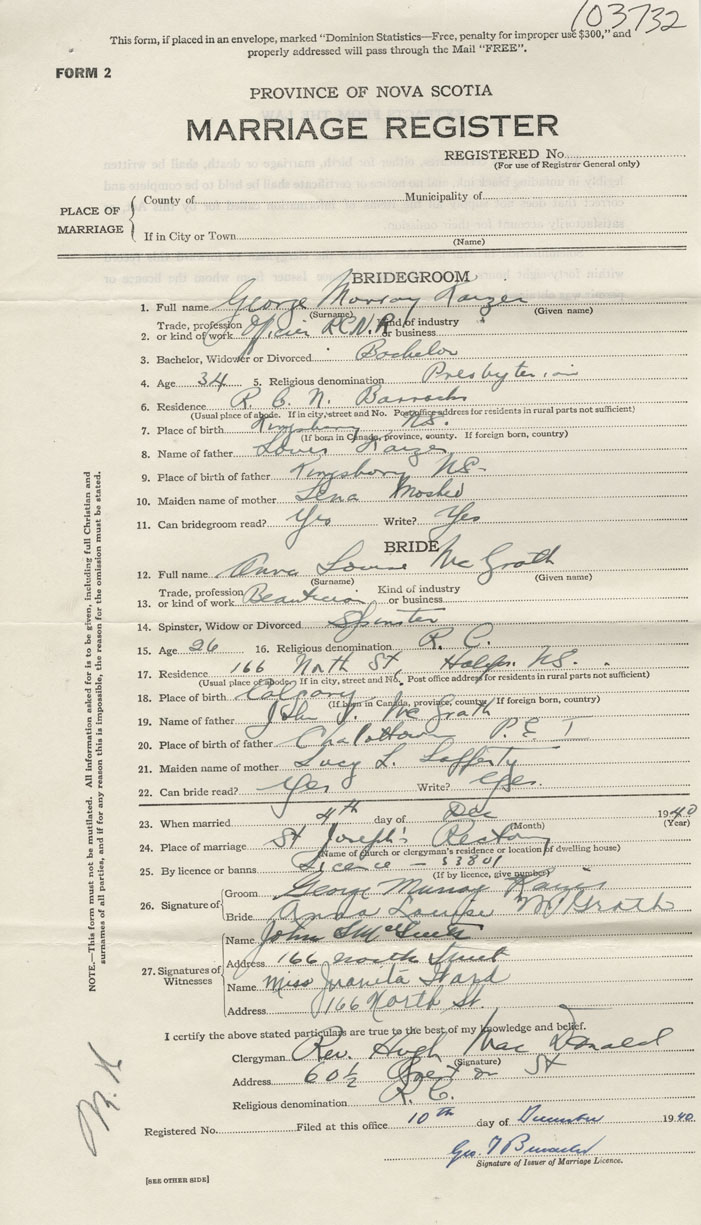 103732
This form, if placed in an envelope, marked "Dominion Statistics—Free, penalty for improper use $300," and
properly addressed will pass through the Mail "FREE".
FORM 2
PROVINCE OF NOVA SCOTIA
MARRIAGE REGISTER
REGISTERED No.
(For use of Registrar General only)
PLACE OF MARRIAGE
County of Municipality of
If in City or Town
(Name)
BRIDEGROOM
1. Full name George Murray
(Surname) (Given name)
2. Trade, profession or kind of work R.C.N.R. Kind of industry or business
3. Bachelor, Widower or Divorced Bachelor
4. Age 34 5. Religious denomination Presbyterian
6. Residence R. C. N. Barracks
(Usual place of abode. If in city, street and No. Post office address for residents in rural parts not sufficient)
7. Place of birth Kingsbury N.S.
(If born in Canada, province, county. If foreign born, country)
8. Name of father Louis
9. Place of birth of father Kingsbury N.S.
10. Maiden name of mother Lena
11. Can bridegroom read? Yes Write? Yes
BRIDE
12. Full name Anna Louise McGrath
(Surname) (Given name)
13. Trade, profession or kind of work Beautician Kind of industry or business
14. Spinster, Widow or Divorced Spinster
15. Age 26 16. Religious denomination R. C.
17. Residence 166 North St N.S.
(Usual place of abode. If in city, street and No. Post office address for residents in rural parts not sufficient)
18. Place of birth Calgary
(If born in Canada, province, county. If foreign born, country)
19. Name of father John J. McGrath
20. Place of birth of father P. E I
21. Maiden name of mother Lucy L. Lafferty
22. Can bride read? Yes Write? Yes.
23. When married 4th day of Dec 1940
(Month) (Year)
24. Place of marriage St Joseph's Rectory
(Name of church or clergyman's residence or location of dwelling house)
25. By licence or banns Licence – 53801
(If by licence, give number)
26. Signature of
Groom George Murray
Bride Anna Louise McGrath
27. Signatures of Witnesses
Name John
Address 166 North Street
Name Miss Juanita
Address 166 North St.
I certify the above stated particulars are true to the best of my knowledge and belief.
Clergyman Rev. Hugh MacDonald
(Signature)
Address 60½ St
Religious denomination R. C.
Registered No. Filed at this office 10th day of December 1940
Geo. T
Signature of Issuer of Marriage Licence.
[SEE OTHER SIDE]
NOTE.—This form must not be mutilated. All information asked for is to be given, including full Christian and
surnames of all parties, and if for any reason this is impossible, the reason for the omission must be stated.